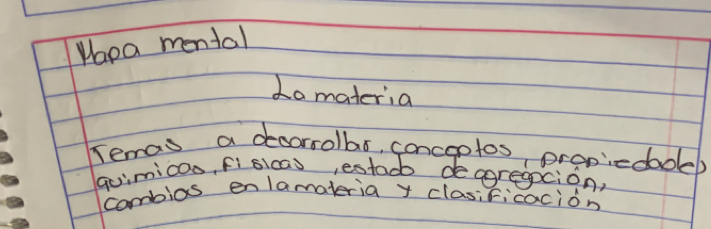 Mapa mental
La materia
Temas a desarrollar, conceptos, propiedades
quimicas, fisicas, estado de agregación,
cambios en la materia y clasificación